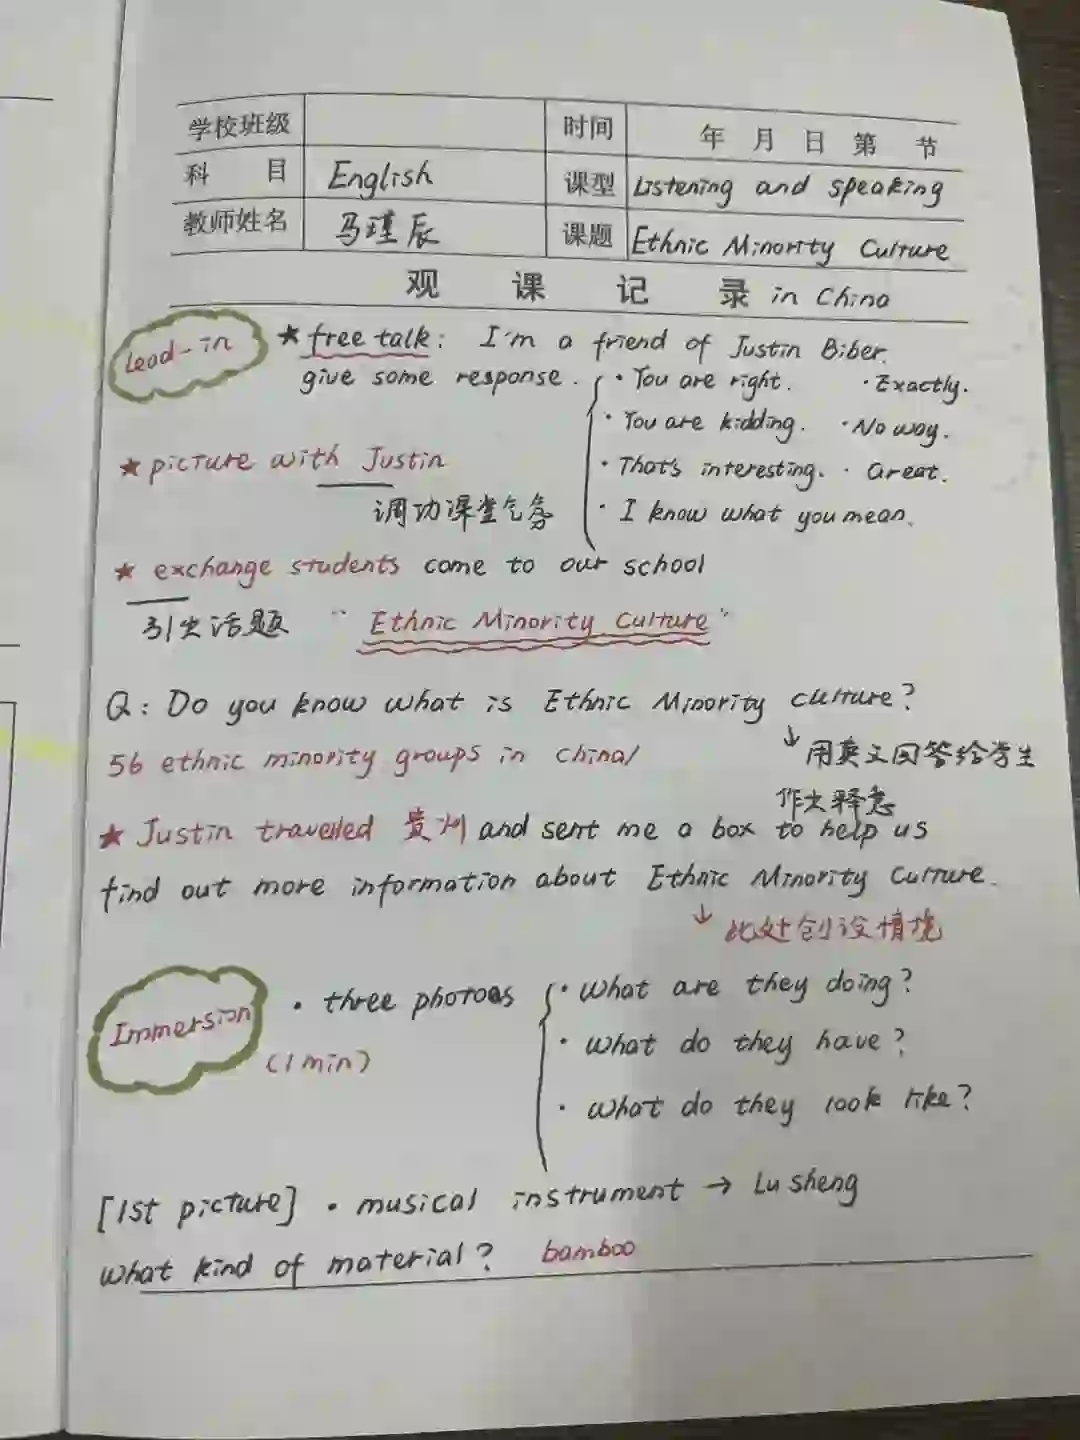 学校班级 时间 年 月 日 第 节
科 目 English 课型 Listening and speaking
教师姓名 马瑾辰 课题 Ethnic Minority Culture
观 课 记 录 in China
Lead-in ★ free talk: I'm a friend of Justin Biber.
give some response. · You are right. · Exactly.
· You are kidding. · No way.
★ picture with Justin · That's interesting. · Great.
调功课堂气氛 · I know what you mean.
★ exchange students come to our school
引出话题 "Ethnic Minority Culture"
Q: Do you know what is Ethnic Minority culture?
56 ethnic minority groups in China/ ↓ 用英文回答给学生
作出释意
★ Justin travelled 贵州 and sent me a box to help us
find out more information about Ethnic Minority Culture.
↓ 此处创设情境
Immersion · three photoes · What are they doing?
(1 min) · What do they have?
· What do they look like?
[1st picture] · musical instrument → Lu sheng
What kind of material? bamboo